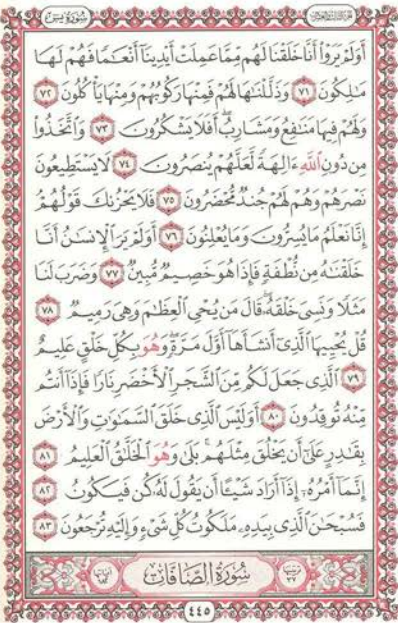 سورة يس
أَوَلَمْ يَرَوْا۟ أَنَّا خَلَقْنَا لَهُم مِّمَّا عَمِلَتْ أَيْدِينَآ أَنْعَٰمًا فَهُمْ لَهَا
مَٰلِكُونَ ٧١ وَذَلَّلْنَٰهَا لَهُمْ فَمِنْهَا رَكُوبُهُمْ وَمِنْهَا يَأْكُلُونَ ٧٢
وَلَهُمْ فِيهَا مَنَٰفِعُ وَمَشَارِبُ ۖ أَفَلَا يَشْكُرُونَ ٧٣ وَٱتَّخَذُوا۟
مِن دُونِ ٱللَّهِ ءَالِهَةً لَّعَلَّهُمْ يُنصَرُونَ ٧٤ لَا يَسْتَطِيعُونَ
نَصْرَهُمْ وَهُمْ لَهُمْ جُندٌ مُّحْضَرُونَ ٧٥ فَلَا يَحْزُنكَ قَوْلُهُمْ
إِنَّا نَعْلَمُ مَا يُسِرُّونَ وَمَا يُعْلِنُونَ ٧٦ أَوَلَمْ يَرَ ٱلْإِنسَٰنُ أَنَّا
خَلَقْنَٰهُ مِن نُّطْفَةٍ فَإِذَا هُوَ خَصِيمٌ مُّبِينٌ ٧٧ وَضَرَبَ لَنَا
مَثَلًا وَنَسِىَ خَلْقَهُۥ ۖ قَالَ مَن يُحْىِ ٱلْعِظَٰمَ وَهِىَ رَمِيمٌ ٧٨
قُلْ يُحْيِيهَا ٱلَّذِىٓ أَنشَأَهَآ أَوَّلَ مَرَّةٍ ۖ وَهُوَ بِكُلِّ خَلْقٍ عَلِيمٌ
٧٩ ٱلَّذِى جَعَلَ لَكُم مِّنَ ٱلشَّجَرِ ٱلْأَخْضَرِ نَارًا فَإِذَآ أَنتُم
مِّنْهُ تُوقِدُونَ ٨٠ أَوَلَيْسَ ٱلَّذِى خَلَقَ ٱلسَّمَٰوَٰتِ وَٱلْأَرْضَ
بِقَٰدِرٍ عَلَىٰٓ أَن يَخْلُقَ مِثْلَهُم ۚ بَلَىٰ وَهُوَ ٱلْخَلَّٰقُ ٱلْعَلِيمُ ٨١
إِنَّمَآ أَمْرُهُۥٓ إِذَآ أَرَادَ شَيْـًٔا أَن يَقُولَ لَهُۥ كُن فَيَكُونُ ٨٢
فَسُبْحَٰنَ ٱلَّذِى بِيَدِهِۦ مَلَكُوتُ كُلِّ شَىْءٍ وَإِلَيْهِ تُرْجَعُونَ ٨٣
سُورَةُ الصَّافَّاتِ
٤٤٥